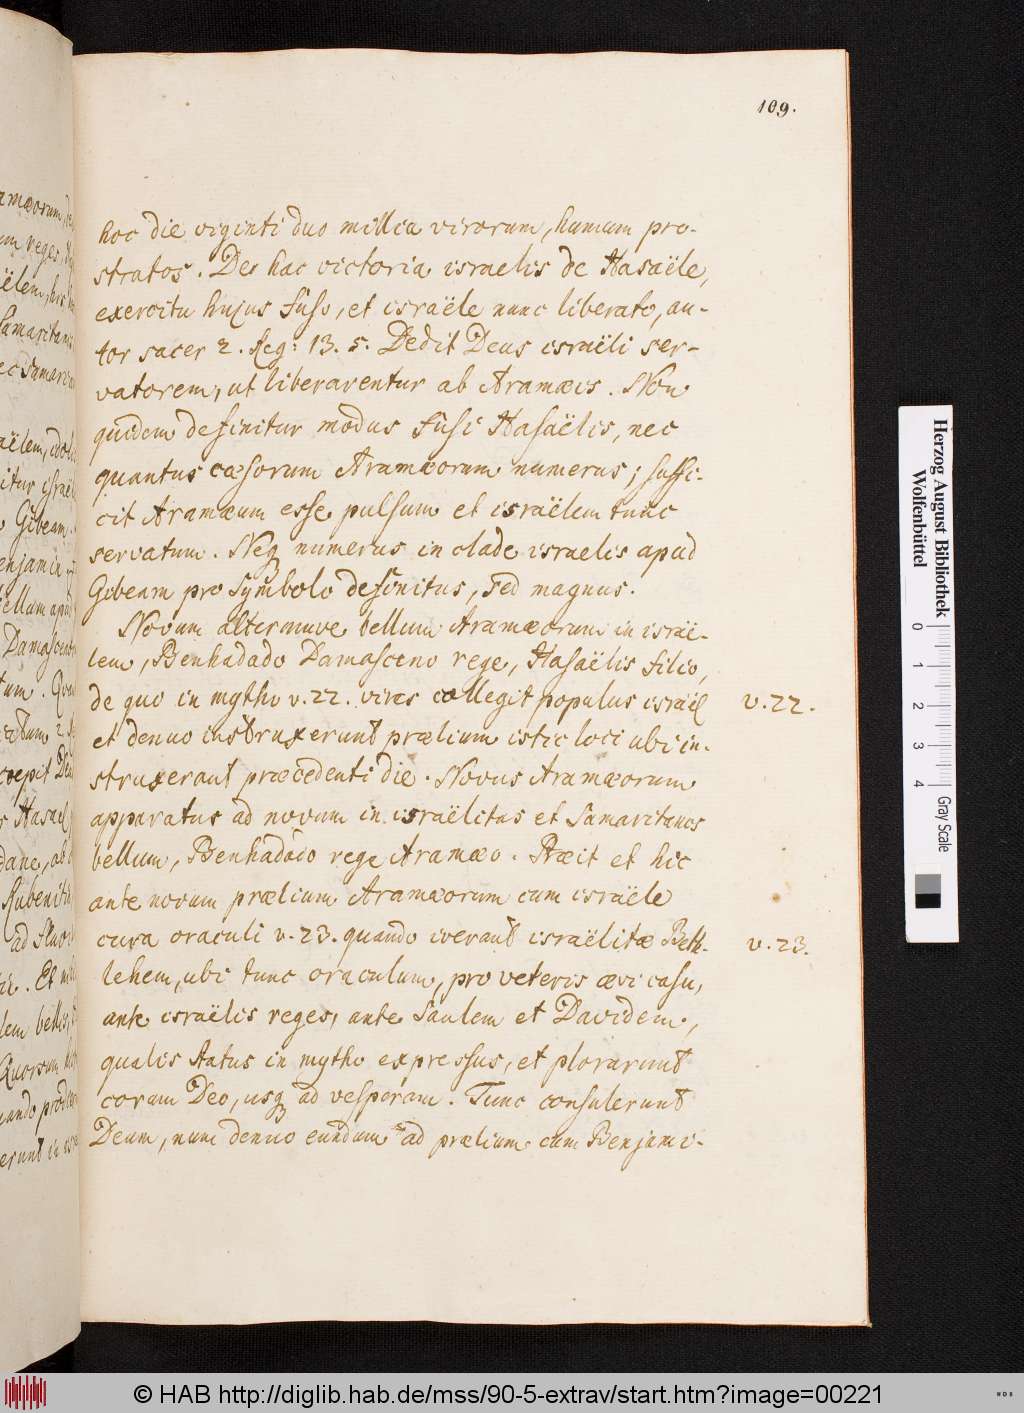 109.
hoc die viginti duo millia virorum, humum pro-
stratos. De hac victoria israelis de Hasaële,
exercitu hujus fuso, et israële nunc liberato, au-
tor sacer 2. Reg: 13. 5. Dedit Deus israëli ser-
vatorem, ut liberarentur ab Aramæis. Non
quidem definitur modus fusi Hasaëlis, nec
quantus cæsorum Aramæorum numerus; suffi-
cit Aramæum esse pulsum et israëlem tunc
servatum. Neq numerus in clade israelis apud
Gibeam pro symbolo definitus, sed magnus.
Novum alterumve bellum Aramæorum in israë-
lem, Benhadado Damasceno rege, Hasaëlis filio,
de quo in mytho v. 22. vires collegit populus israël
v. 22.
et denuo instruxerunt prælium istic loci ubi in-
struxerant præcedenti die. Novus Aramæorum
apparatus ad novum in israëlitas et Samaritanos
bellum, Benhadado rege Aramæo. Præit et hic
ante novum prælium Aramæorum cum israële
cura oraculi v. 23. quando iverant israëlitæ Beth-
v. 23.
lehem, ubi tunc oraculum, pro veteris ævi casu,
ante israëlis reges, ante Saulem et Davidem,
qualis status in mytho expressus, et plorarunt
coram Deo, usq ad vesperam. Tunc consulerunt
Deum, num denuo eundum ad prælium cum Benjami-
Herzog August Bibliothek
Wolfenbüttel
0 1 2 3 4
Gray Scale
© HAB http://diglib.hab.de/mss/90-5-extrav/start.htm?image=00221